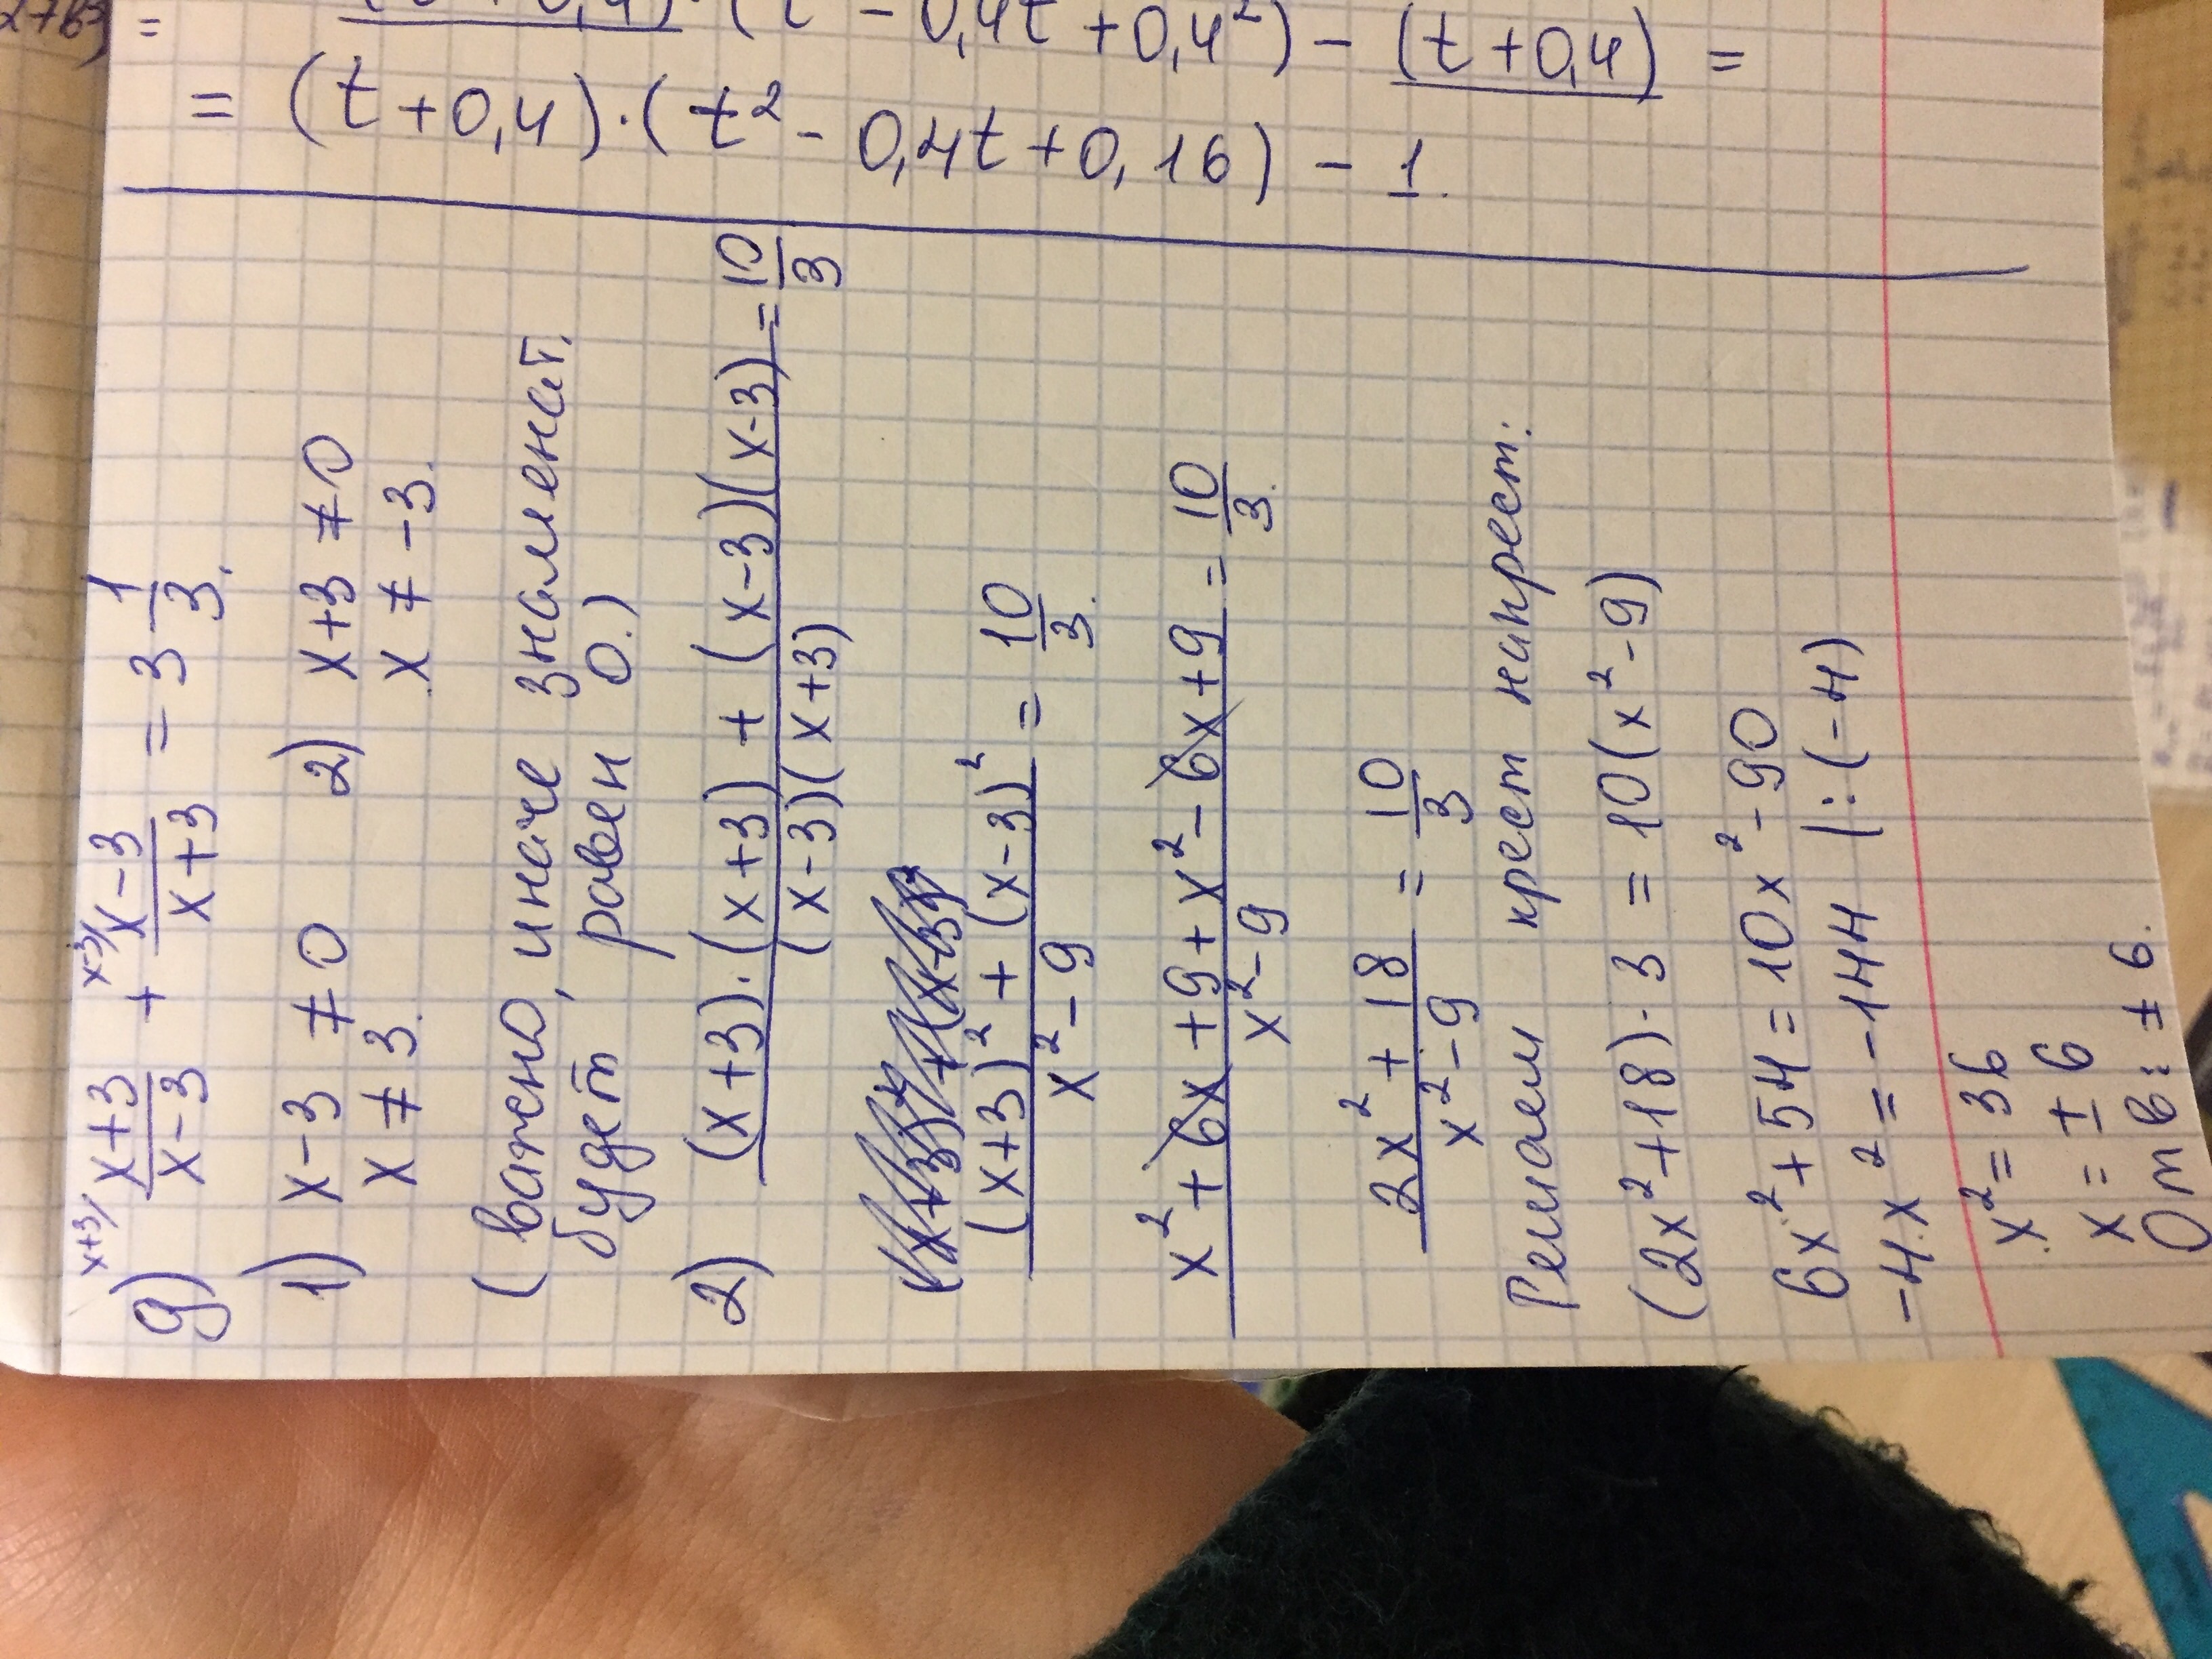 = (t+0,4)·(t² - 0,4t + 0,4²) - (t+0,4) =
= (t+0,4)·(t² - 0,4t + 0,16) - 1.
д) x+3/ (x+3)/(x-3) + x-3/ (x-3)/(x+3) = 3 1/3.
1) x-3 ≠ 0 2) x+3 ≠ 0
x ≠ 3. x ≠ -3.
(важно, иначе знаменат.
будет равен 0.)
2) ((x+3)·(x+3) + (x-3)(x-3))/((x-3)(x+3)) = 10/3
((x+3)² + (x-3)²)/(x²-9) = 10/3.
(x²+6x+9+x²-6x+9)/(x²-9) = 10/3.
(2x²+18)/(x²-9) = 10/3
Решаем крест накрест:
(2x²+18)·3 = 10(x²-9)
6x²+54=10x²-90
-4·x²=-144 |:(-4)
x²=36
x=±6
Отв: ±6.